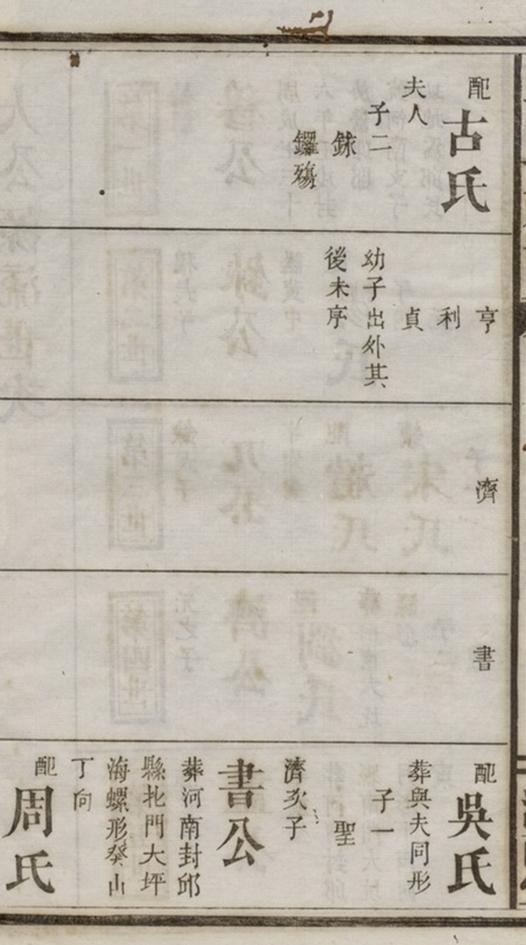 配
古氏
夫人
子二
銶
鑼殤
亨
利
貞
幼子出外其
後未序
濟
書
配
吳氏
葬與夫同形
子一
聖
濟次子
書公
葬河南封邱
縣北門大坪
海螺形癸山
丁向
配
周氏